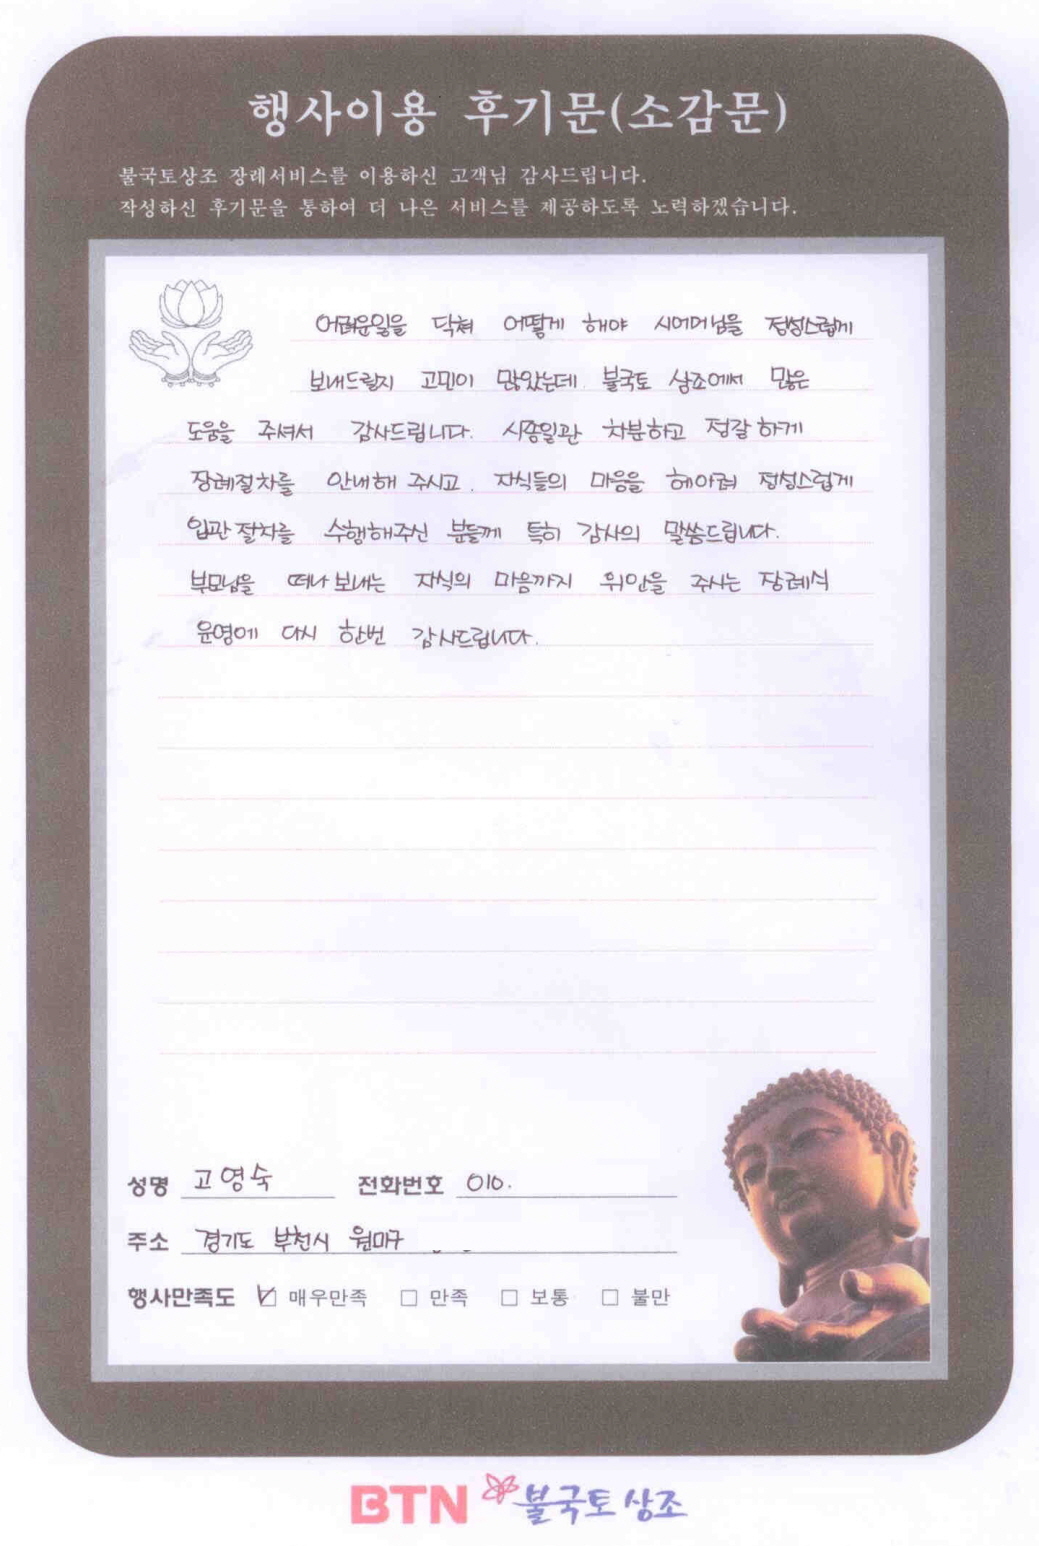 행사이용 후기문(소감문)
불국토상조 장례서비스를 이용하신 고객님 감사드립니다.
작성하신 후기문을 통하여 더 나은 서비스를 제공하도록 노력하겠습니다.
어려운일을 닥쳐 어떻게 해야 시어머님을 정성스럽게
보내드릴지 고민이 많았는데 불국토 상조에서 많은
도움을 주셔서 감사드립니다. 시종일관 차분하고 정갈하게
장례절차를 안내해 주시고, 자식들의 마음을 헤아려 정성스럽게
입관절차를 수행해주신 분들께 특히 감사의 말씀드립니다.
부모님을 떠나보내는 자식의 마음까지 위안을 주시는 장례식
운영에 다시 한번 감사드립니다.
성명 고영숙 전화번호 010.
주소 경기도 부천시 원미구
행사만족도 ☑ 매우만족 □ 만족 □ 보통 □ 불만
BTN 불국토상조